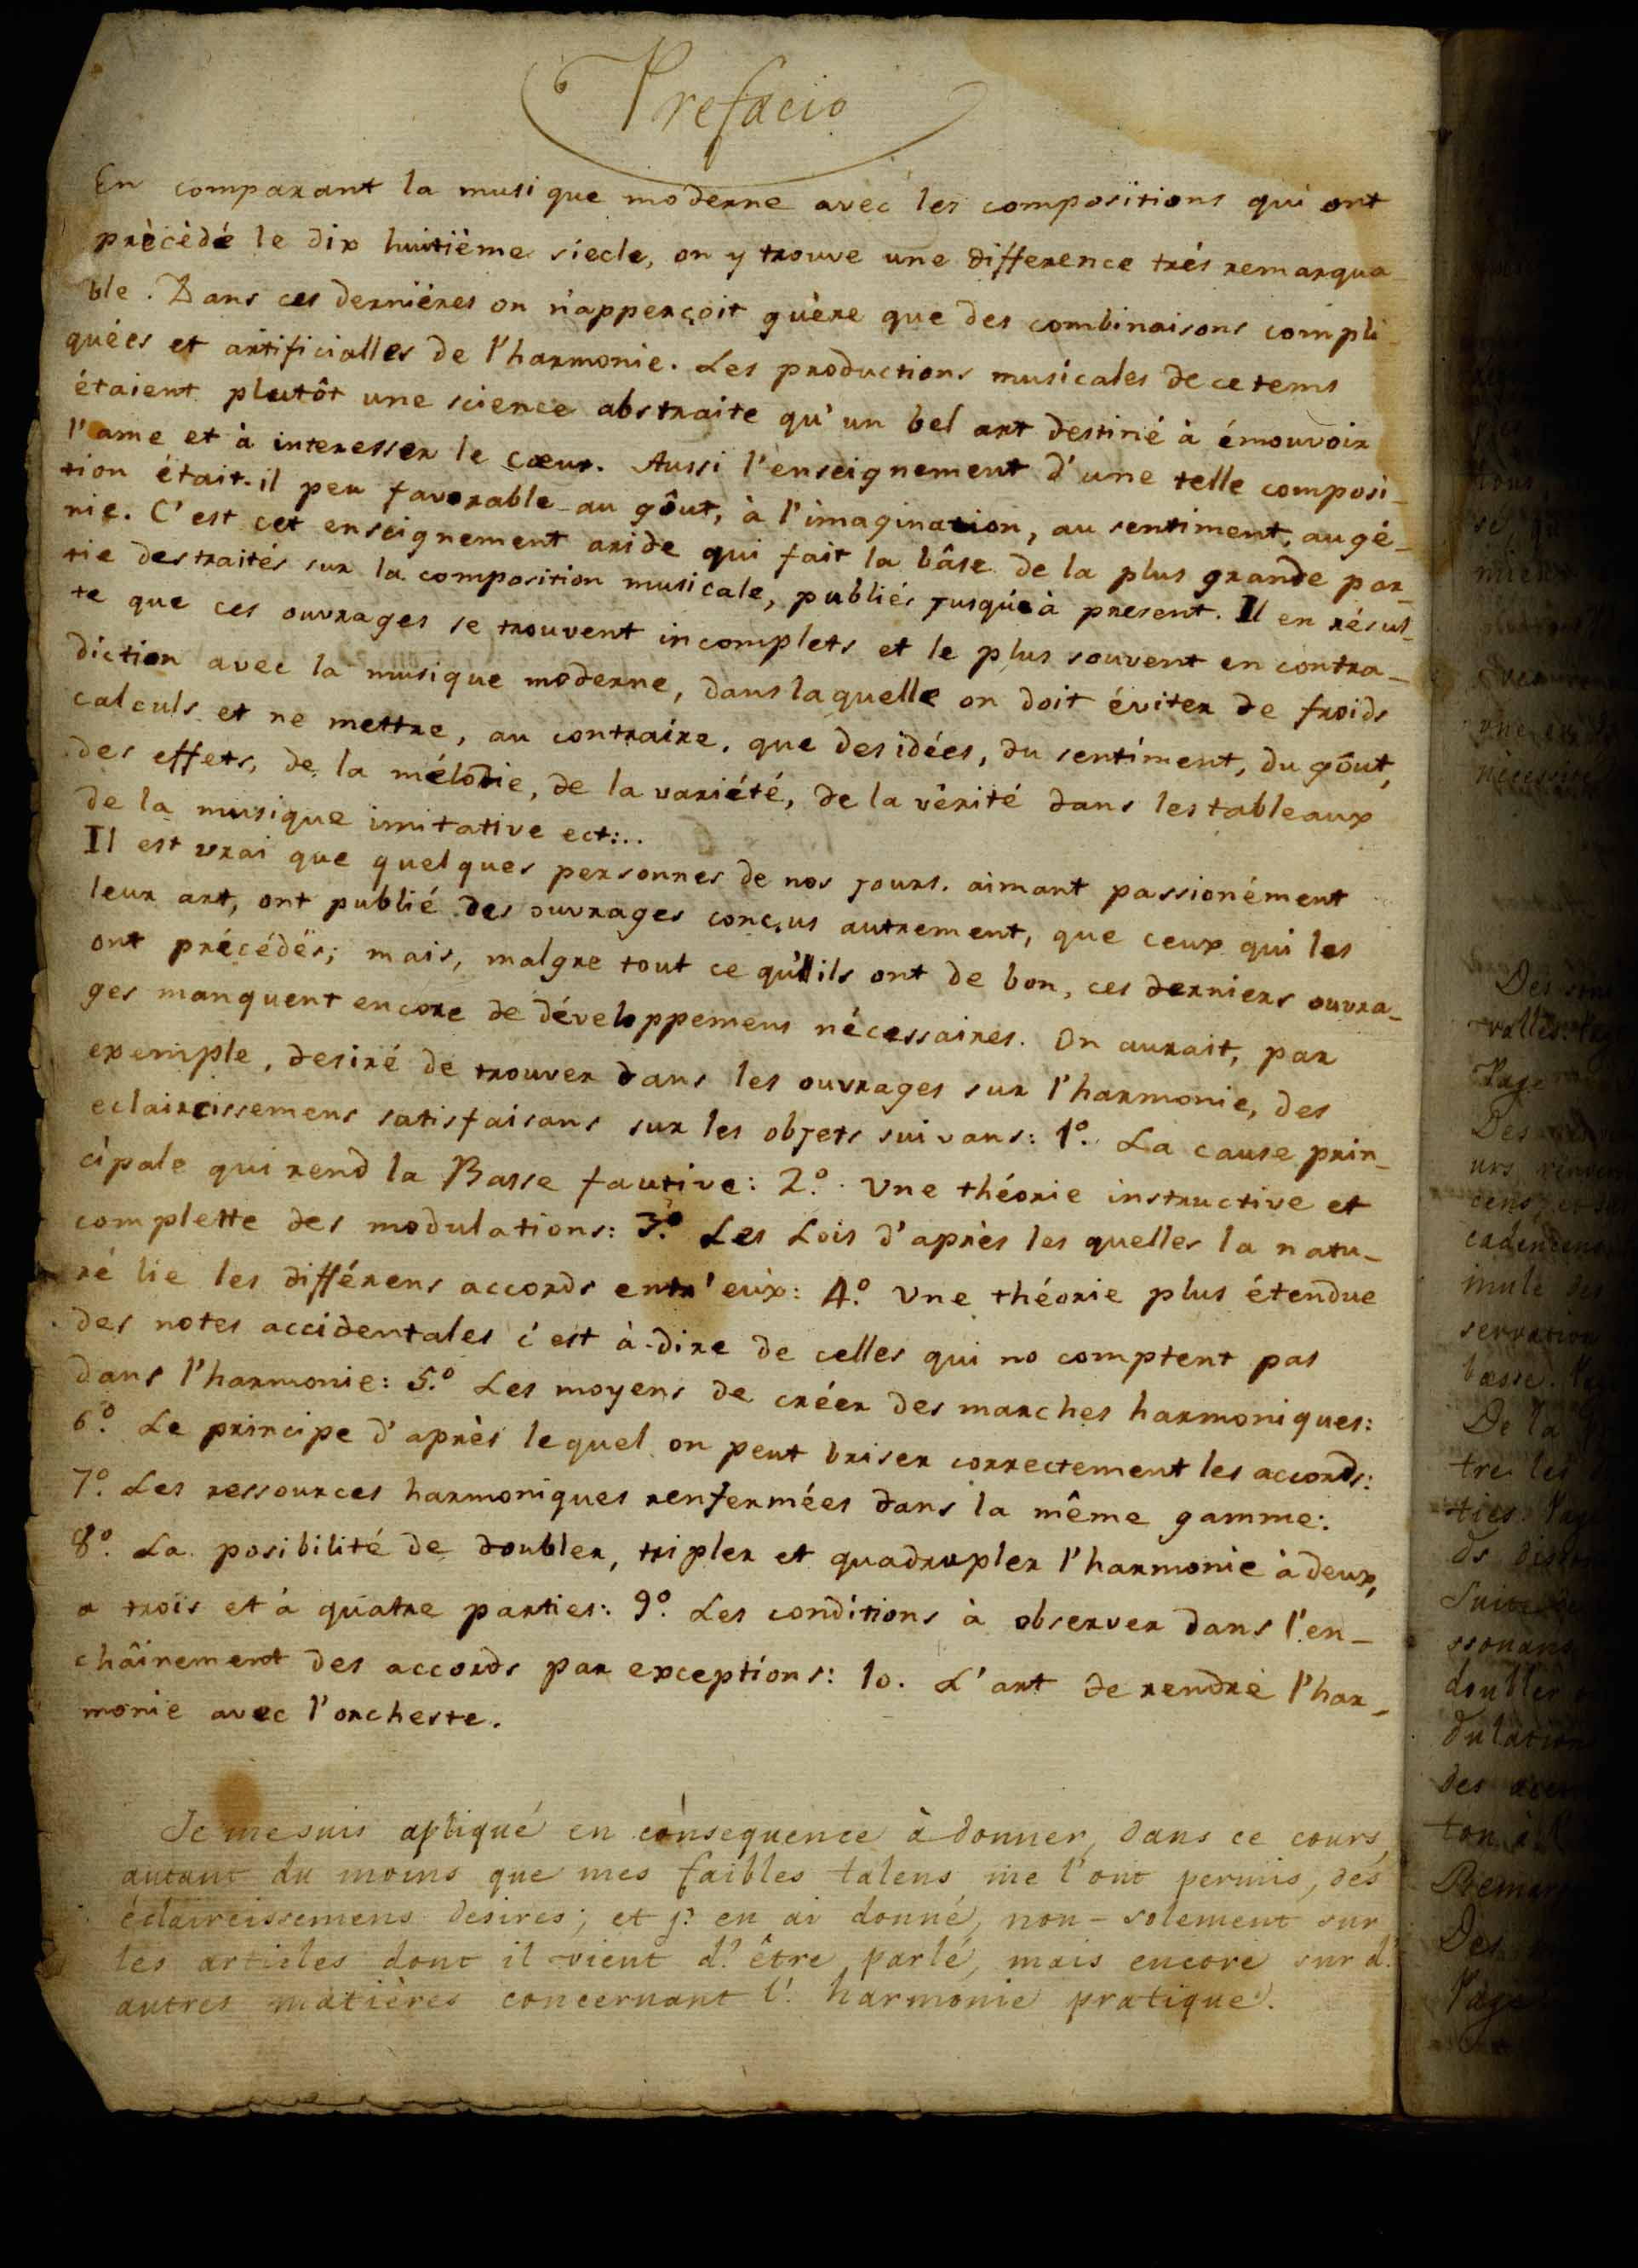 Prefacio
En comparant la musique moderne avec les compositions qui ont
précèdé le dix huitième siecle, on y trouve une difference trés remarqua_
ble. Dans ces derniéres on n'apperçoit guère que des combinaisons compli_
quées et artificialles de l'harmonie. Les productions musicales de ce tems
étaient plutôt une science abstraite qu'un bel art destiné à émouvoir
l'ame et à interesser le cœur. Aussi l'enseignement d'une telle composi_
tion était-il peu favorable au gôut, à l'imagination, au sentiment, au gé_
nie. C'est cet enseignement aride qui fait la bâse de la plus grande par_
tie des traités sur la composition musicale, publiés jusqu'à present. Il en résul_
te que ces ouvrages se trouvent incomplets et le plus souvent en contra_
diction avec la musique moderne, dans laquelle on doit éviter de froids
calculs et ne mettre, au contraire, que des idées, du sentiment, du gôut,
des effets, de la mélodie, de la variété, de la vèrité dans les tableaux
de la musique imitative ect:..
Il est vrai que quelques personnes de nos jours. aimant passionément
leur art, ont publié des ouvrages conçus autrement, que ceux qui les
ont précédés; mais, malgre tout ce qu'ils ont de bon, ces derniers ouvra_
ges manquent encore de développemens nécessaires. On aurait, par
exemple, desiré de trouver dans les ouvrages sur l'harmonie, des
eclaircissemens satisfaisans sur les objets suivans: 1º. La cause prin_
cipale qui rend la Basse fautive: 2º. Une théorie instructive et
complette des modulations: 3º. Les Lois d'après les quelles la natu_
ré lie les différens accords entr'eux: 4º. Une théorie plus étendue
des notes accidentales c'est à-dire de celles qui no comptent pas
dans l'harmonie: 5º. Les moyens de créer des marches harmoniques:
6º. Le principe d'après lequel on peut briser correctement les accords:
7º. Les ressources harmoniques renfermées dans la même gamme:
8º. La posibilité de doubler, tripler et quadrupler l'harmonie à deux,
a trois et à quatre parties: 9º. Les conditions à observer dans l'en_
chaînement des accords par exceptions: 10. L'art de rendre l'har_
monie avec l'orcheste.
Je me suis apliqué en consequence à donner, dans ce cours,
autant du moins que mes faibles talens me l'ont permis, des
éclaircissemens desires; et j' en ai donné, non-solement sur
les articles dont il vient d' être parlé, mais encore sur d'
autres matières concernant l' harmonie pratique.